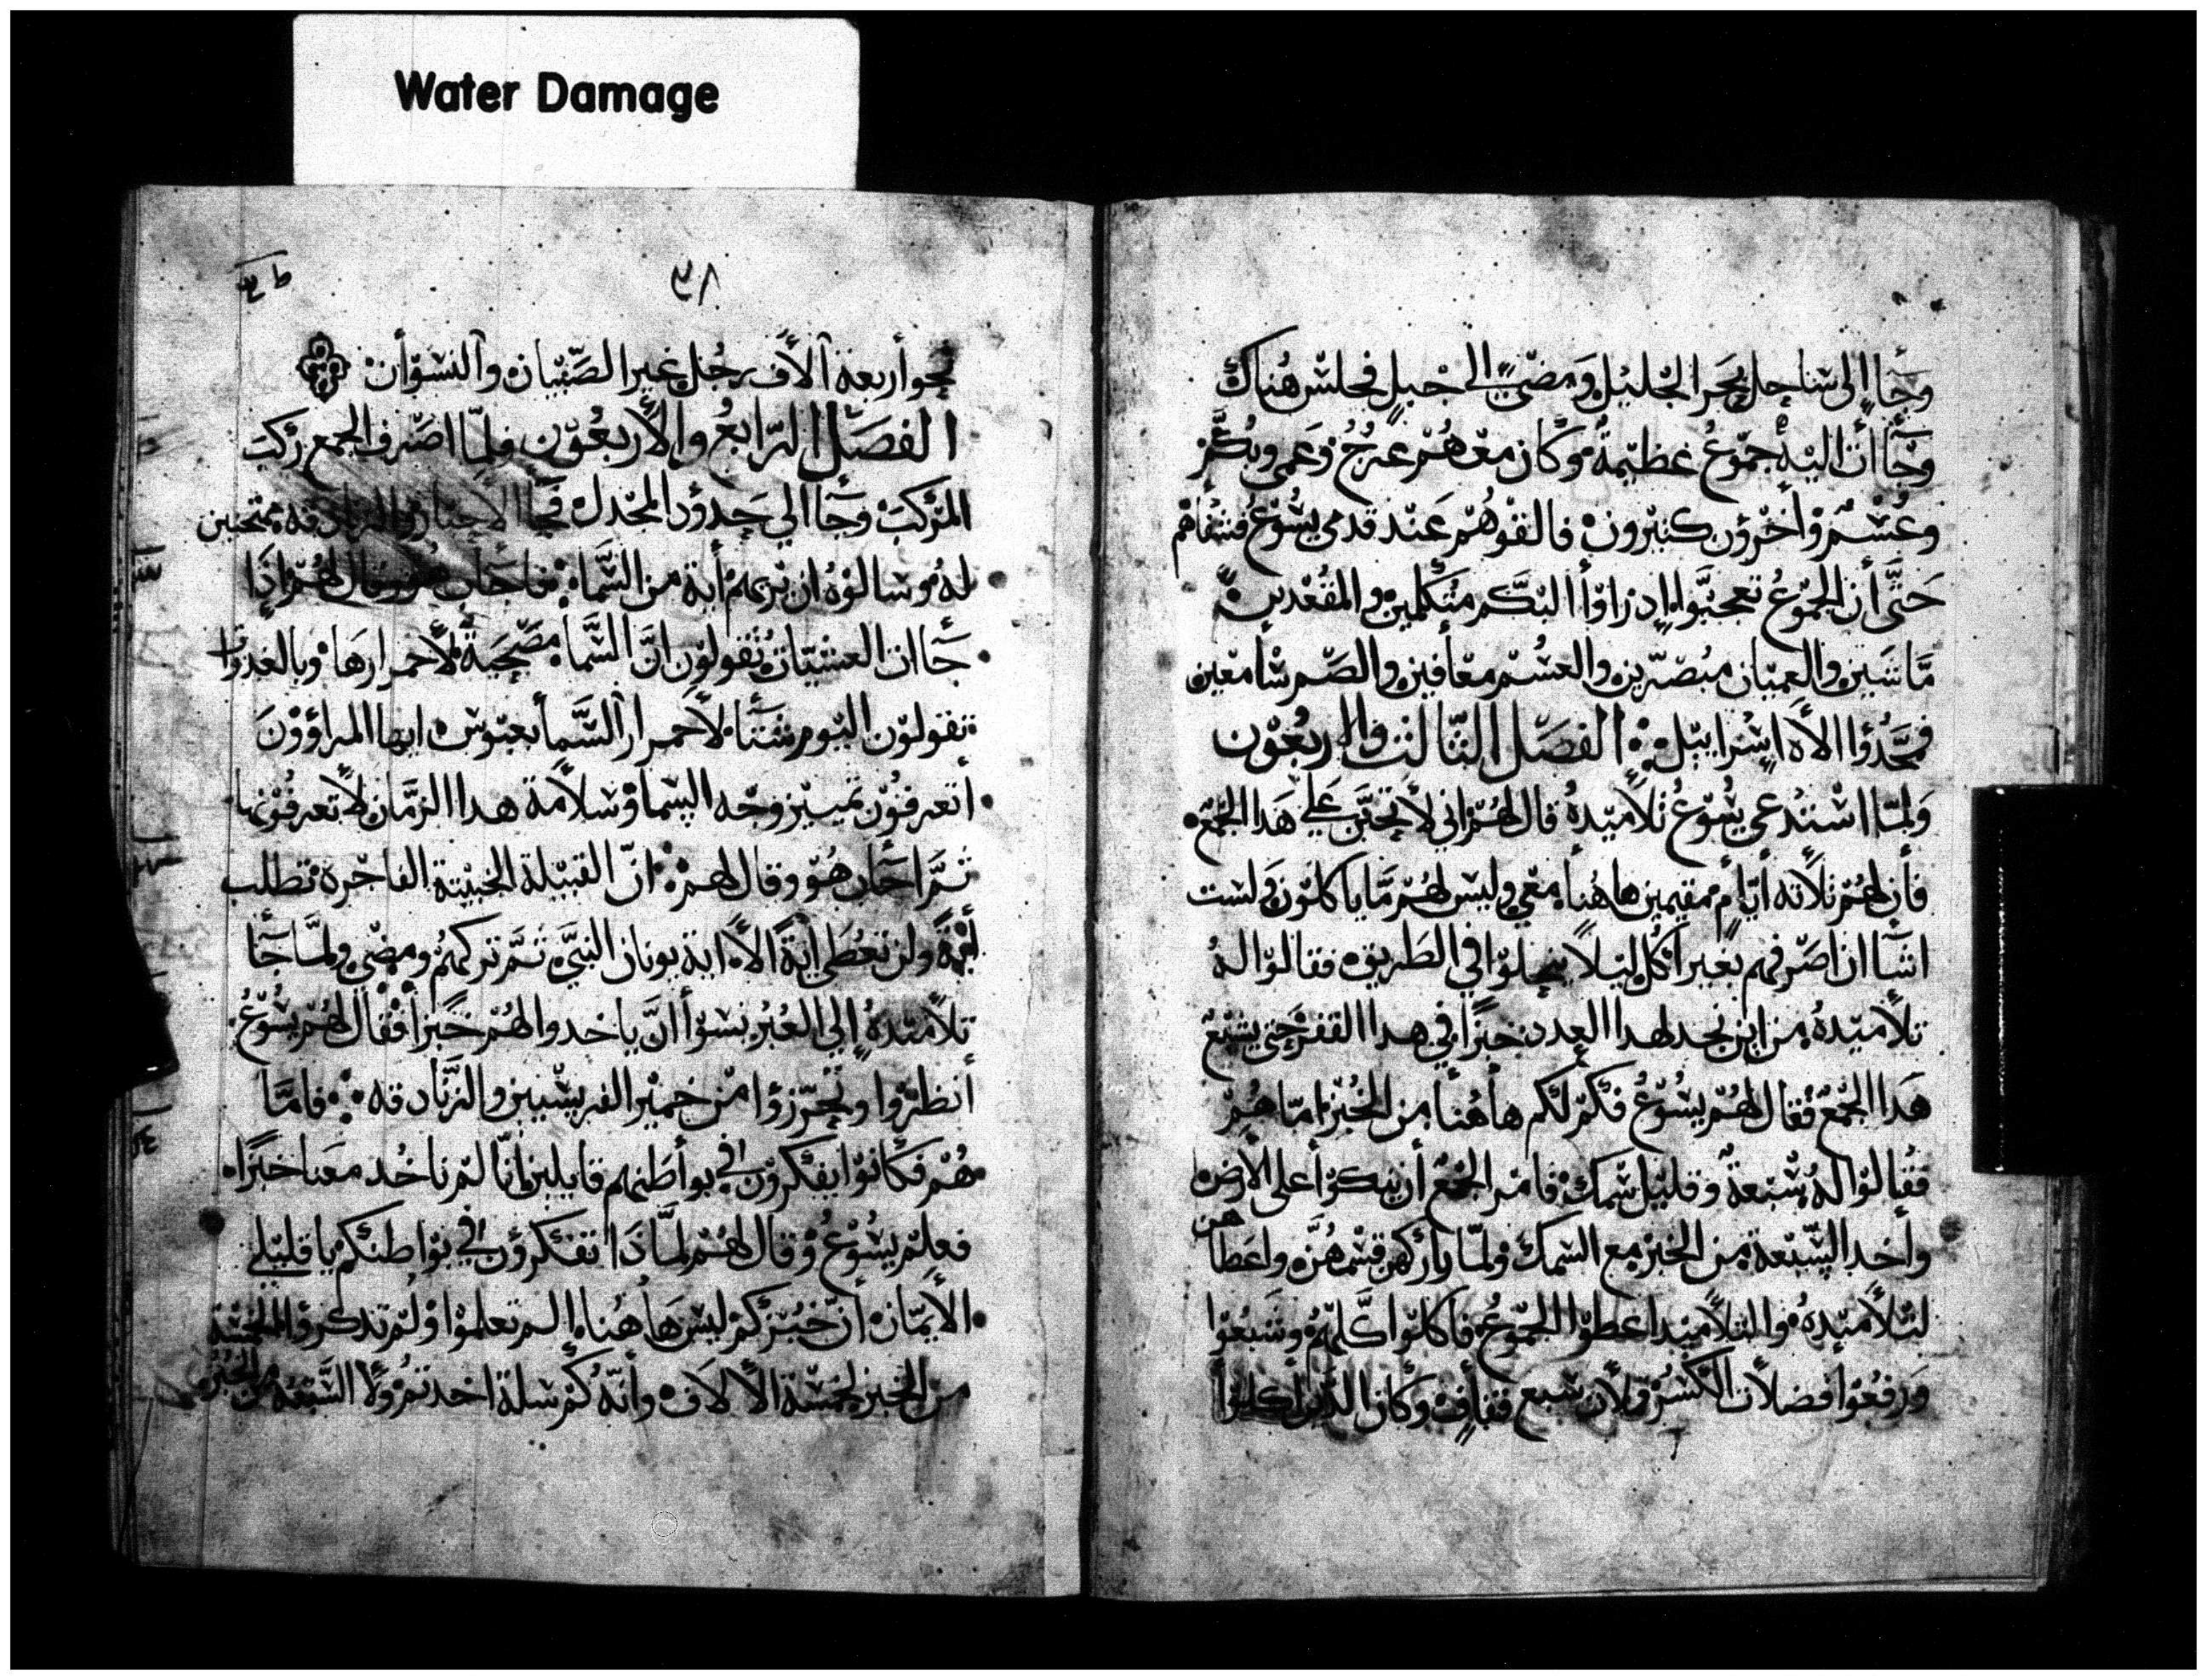 Water Damage
وجآ إلى شاحل بحر الجليل ومضى الى جبل فجلس هناك
وجاأت اليه جموع عظيمة وكان معهم عرج وعمى وبكم
وعسم وأخرون كثيرون فالقوهم عند قدمى يشوع فشفاهم
حتى أن الجموع تعجبوا إذ راوا البكم متكلمين والمقعدين
ماشين والعميان مبصرين والعسم معافين والصم سامعين
فمجدوا الاه إسراييل الفصل الثالث والاربعون
ولما استدعى يشوع تلاميده قال لهم اني لأتحنن على هدا الجمع
فأن لهم ثلاثه أيام مقيمين هاهنا معي وليس لهم ما ياكلون ولست
اشآ ان اصرفهم بغير اكل ليلا ينحلوا في الطريق فقالوا له
تلاميده من اين نجد لهدا العدد خبزا في هدا القفر حتى يشبع
هدا الجمع فقال لهم يشوع فكم لكم هاهنا من الخبز امّا هم
فقالوا له سبعة وقليل سمك فامر الجمع أن يتكوا على الأرض
وأخد السبعة من الخبز مع السمك ولما باركهن قسمهن واعطاهن
لتلاميده والتلاميد اعطوا الجموع فاكلوا كلهم وشبعوا
ورفعوا فضلات الكسر ملأن سبع قفاف وكان الدين أكلوا
٣٨
نحو أربعة آلاف رجل غير الصبيان والنسوأن
الفصل الرابع والأربعون ولما اصرف الجمع ركب
المركب وجآ الي حدود المجدل فجا الاحبار والزنادقه ممتحنين
له وسالوه ان يريهم أية من السما فاجاب هو وقال لهم اذا
جاات العشيات تقولون ان السما مصحية لأحمرارها وبالغدوات
تقولون اليوم شتا لأحمرار السما بعبوس ايها المراؤون
أتعرفون تمييز وجه السما وسلامة هدا الزمان لا تعرفونها
ثم اجاب هو وقال لهم ان القبيلة الخبيثة الفاجرة تطلب
أية ولن تعطى اية الا اية يونان النبي ثم تركهم ومضى ولما جآ
تلاميده إلي العبر نسوا ان ياخدوا لهم خبزا فقال لهم يشوع
أنظروا وتحرزوا من خمير الفريسيين والزنادقه فامّا
هم فكانوا يفكرون في بواطنهم قايلين انّا لم ناخد معنا خبزا
فعلم يشوع وقال لهم لمادا تفكرون في بواطنكم يا قليلي
الأيمان أن خبزكم ليس هاهنا الم تعلموا ولم تدكروا الخمسة
من الخبز لخمسة الالاف وأنه كم سلة اخدتم ولا السبعه من الخبز